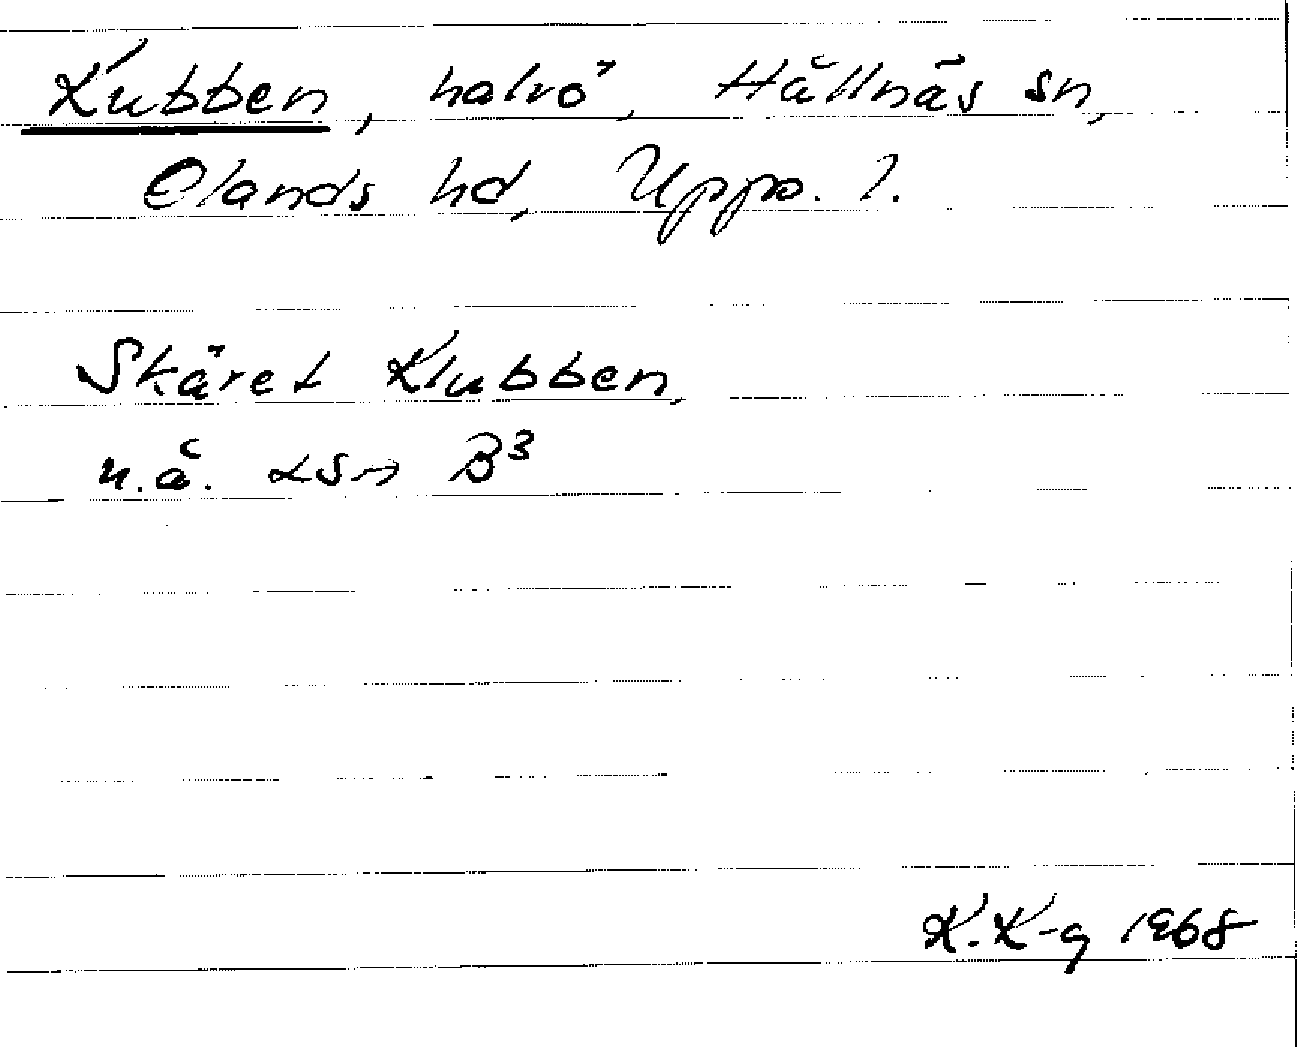 Kubben, halvö, Hållnäs sn,
Olands hd, Upps. l.
Skäret Klubben,
n.å. LSA B³
K.K-g 1968